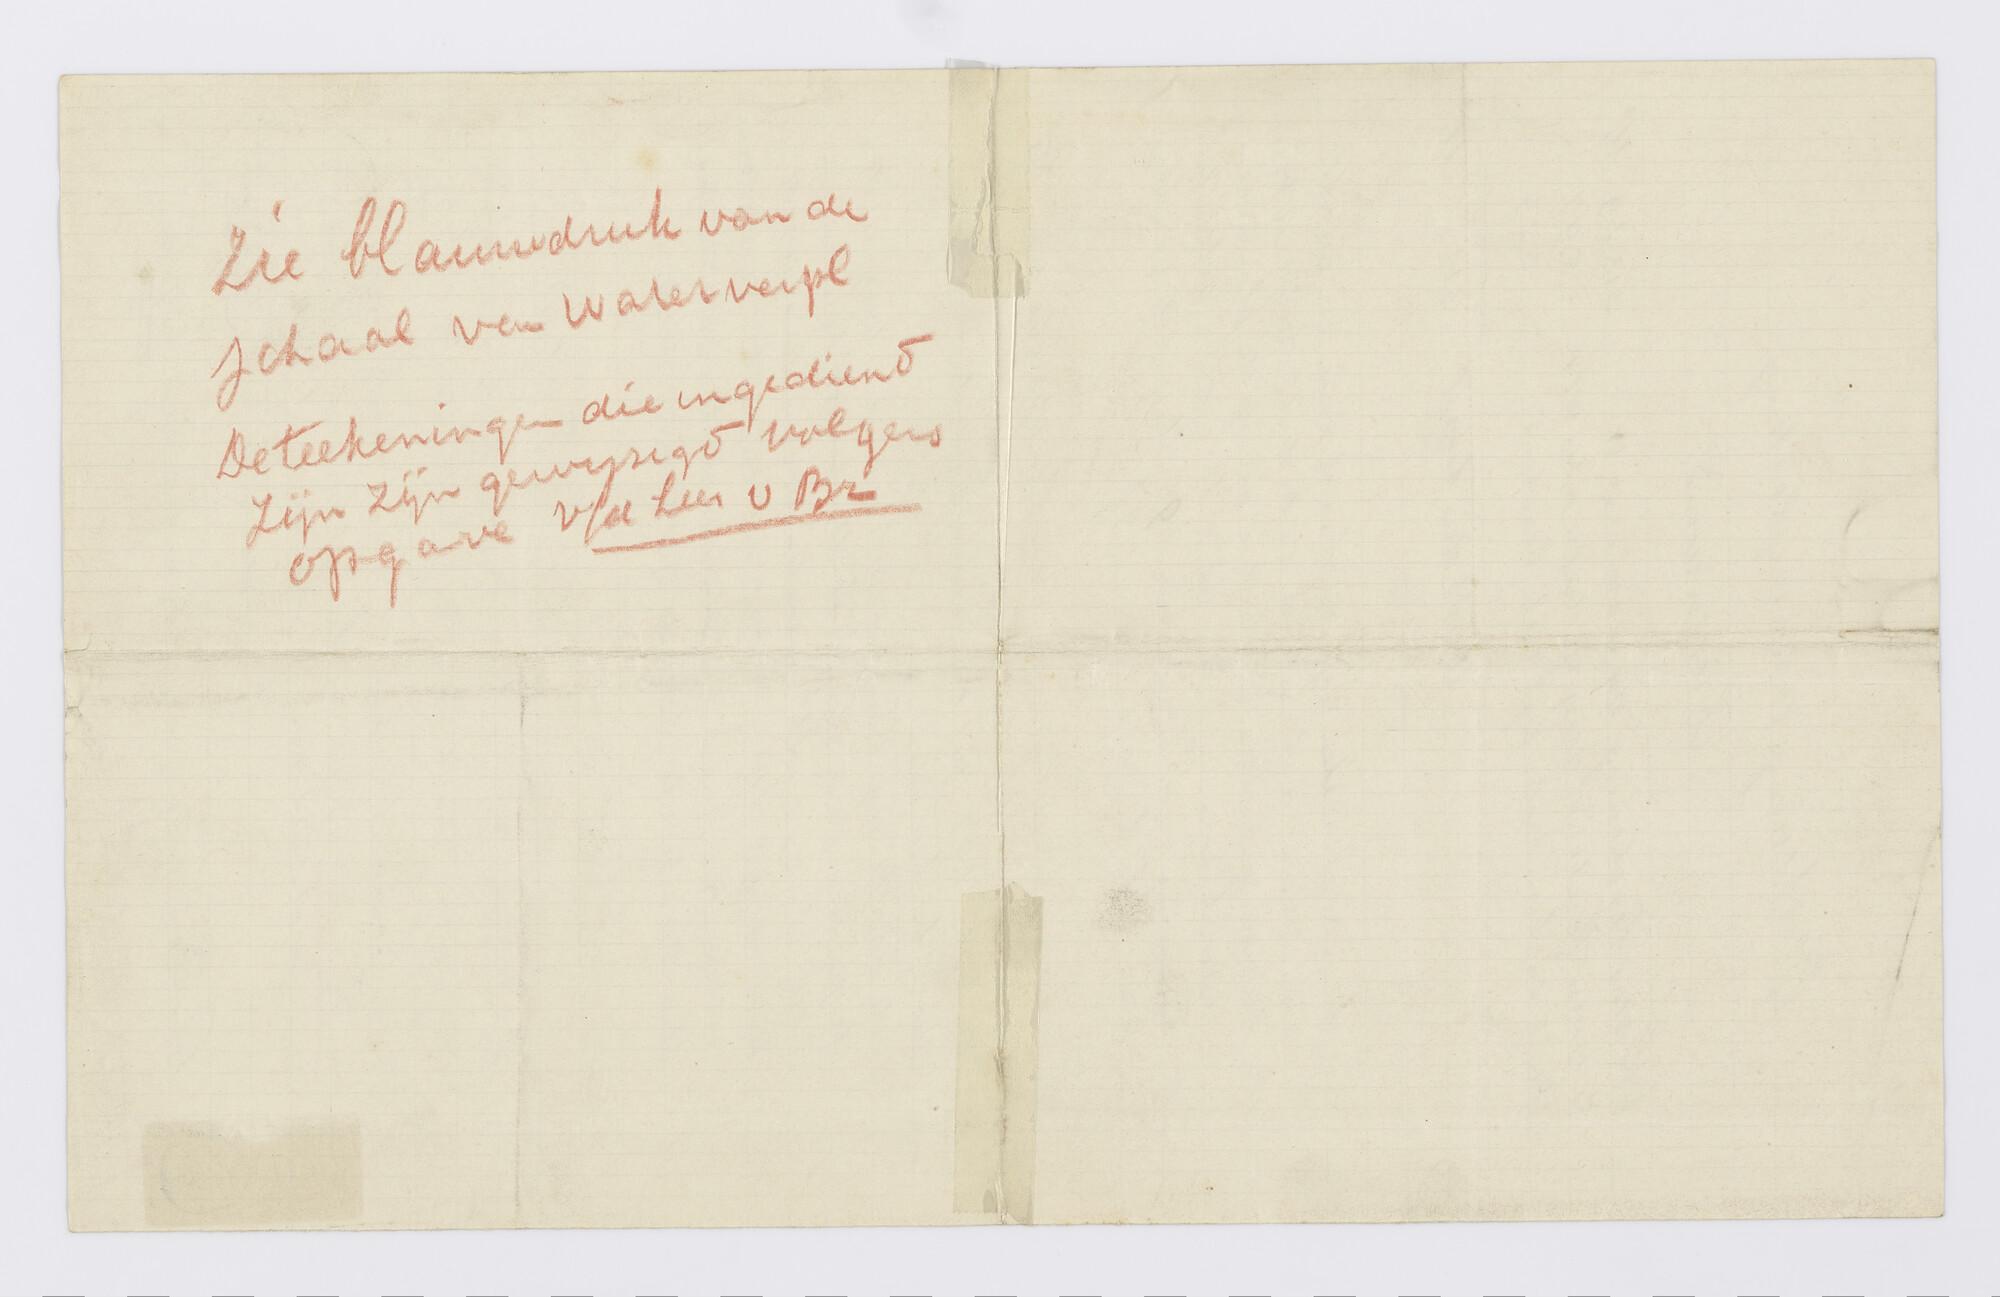 Zie blauwdruk van de
schaal van Waterverpl
De teekeningen die ingediend
zijn zijn gewijzigd volgens
opgave v/d Heer v Br